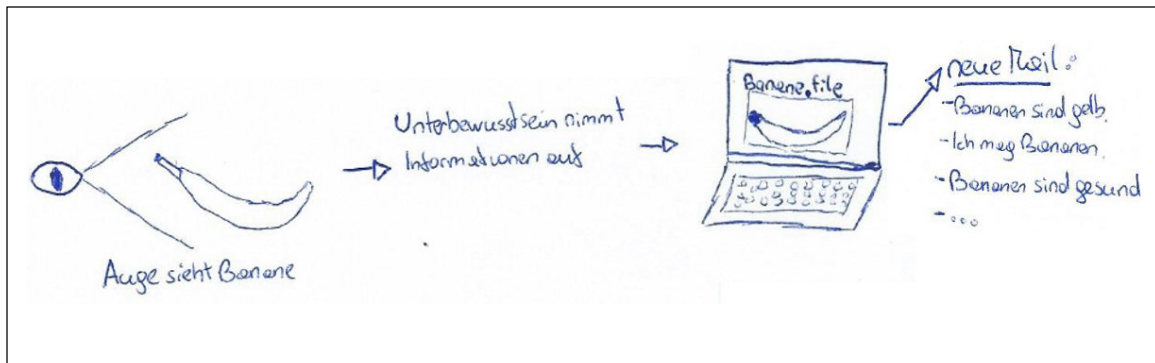 Auge sieht Banane
Unterbewusstsein nimmt
Informationen auf
Banane.file
neue Mail:
-Bananen sind gelb.
-Ich mag Bananen.
-Bananen sind gesund
-...